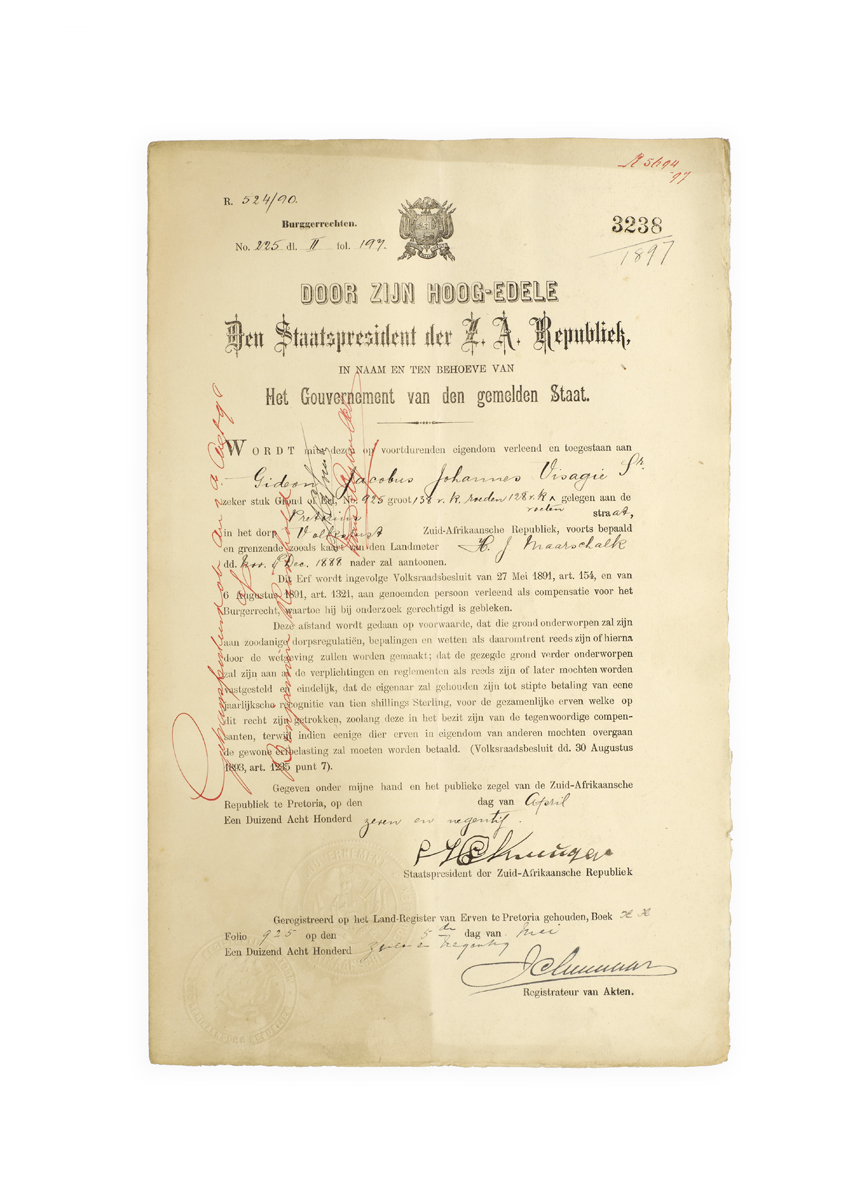 R 5694
97
R. 524/90.
Burggerrechten.
No. 225 dl. II fol. 197.
3238
1897
DOOR ZIJN HOOG-EDELE
Den Staatspresident der Z. A. Republiek,
IN NAAM EN TEN BEHOEVE VAN
Het Gouvernement van den gemelden Staat.
WORDT mits dezen op voortdurenden eigendom verleend en toegestaan aan
Gideon Jacobus Johannes Visagie Sr.
zeker stuk Grond of Erf, No. 925 groot 138 v. k. roeden 128 v. k. gelegen aan de
roeden
Pretorius straat,
in het dorp Volksrust Zuid-Afrikaansche Republiek, voorts bepaald
en grenzende zooals kaart van den Landmeter H. J Maarschalk
dd. Nov. & Dec. 1888 nader zal aantoonen.
Dit Erf wordt ingevolge Volksraadsbesluit van 27 Mei 1891, art. 154, en van
6 Augustus 1891, art. 1321, aan genoemden persoon verleend als compensatie voor het
Burgerrecht, waartoe hij bij onderzoek gerechtigd is gebleken.
Deze afstand wordt gedaan op voorwaarde, dat die grond onderworpen zal zijn
aan zoodanige dorpsregulatiën, bepalingen en wetten als daaromtrent reeds zijn of hierna
door de wetgeving zullen worden gemaakt; dat de gezegde grond verder onderworpen
zal zijn aan al de verplichtingen en reglementen als reeds zijn of later mochten worden
vastgesteld en eindelijk, dat de eigenaar zal gehouden zijn tot stipte betaling van eene
jaarlijksche recognitie van tien shillings Sterling, voor de gezamenlijke erven welke op
dit recht zijn getrokken, zoolang deze in het bezit zijn van de tegenwoordige compen-
santen, terwijl indien eenige dier erven in eigendom van anderen mochten overgaan
de gewone erfbelasting zal moeten worden betaald. (Volksraadsbesluit dd. 30 Augustus
1893, art. 1295 punt 7).
Gegeven onder mijne hand en het publieke zegel van de Zuid-Afrikaansche
Republiek te Pretoria, op den dag van April
Een Duizend Acht Honderd zeven en negentig.
Staatspresident der Zuid-Afrikaansche Republiek
Geregistreerd op het Land-Register van Erven te Pretoria gehouden, Boek XX
Folio 925 op den 5 de dag van Mei
Een Duizend Acht Honderd zeven en negentig
Registrateur van Akten.